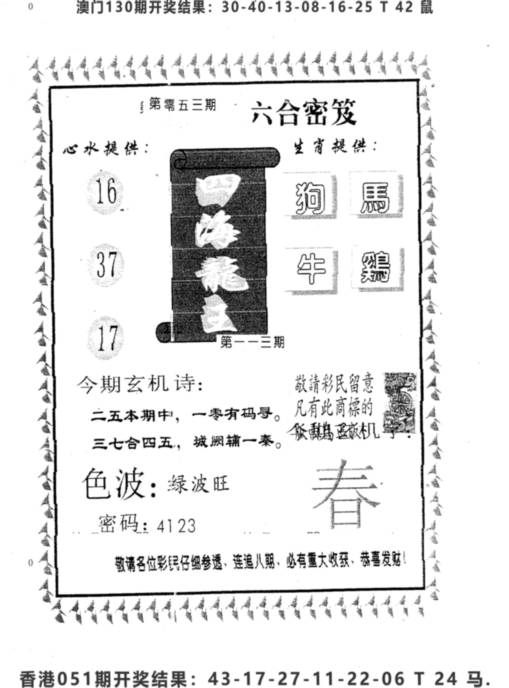 澳门130期开奖结果：30-40-13-08-16-25 T 42 鼠
第零五三期
六合密笈
心水提供：
生肖提供：
16
37
17
四海龍王
第一一三期
狗
馬
牛
鷄
今期玄机诗：
二五本期中，一零有码寻。
三七合四五，城阙辅一秦。
敬請彩民留意
凡有此商標的
色波：绿波旺
密码：4123
春
敬请各位彩民仔细参透、连追八期、必有重大收获、恭喜发财！
香港051期开奖结果：43-17-27-11-22-06 T 24 马.